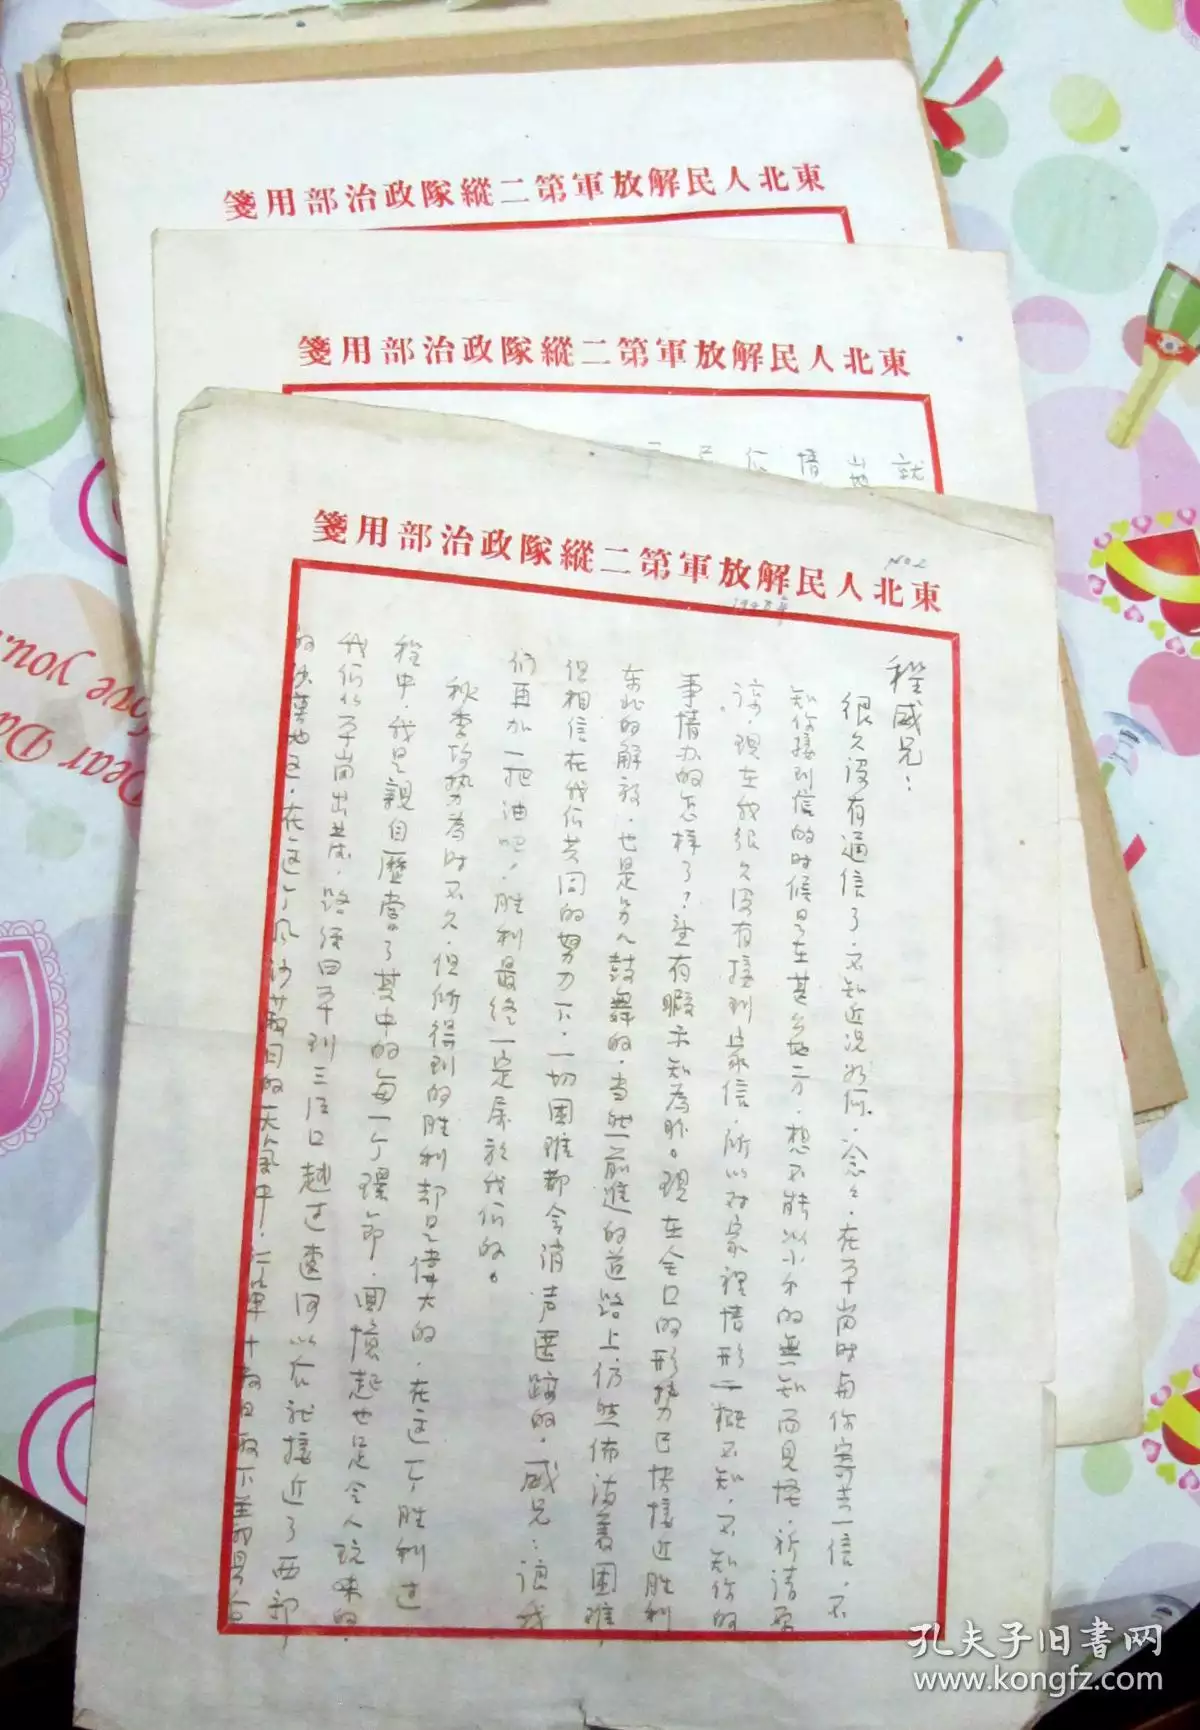 東北人民解放軍第二縱隊政治部用箋
東北人民解放軍第二縱隊政治部用箋
就
情
東北人民解放軍第二縱隊政治部用箋
NO2
程威兄：
很久沒有通信了，不知近況如何，念々，在平崗时与你寄去一信，不
知你接到信的时候是在甚么地方，想不能以小弟的無知而見怪，祈請原
諒，現在我很久沒有接到家信，所以对家裡情形一概不知，不知你的
事情办的怎样了？望有暇示知為盼。現在全口的形势已快接近胜利
東北的解放，也是令人鼓舞的，当然前進的道路上仍然佈滿着困难，
但相信在我们共同的努力下，一切困难都会消声匿跡的，威兄：讓我
们再加一把油吧！胜利最終一定屬於我们的。
秋季攻势為时不久，但所得到的胜利却是偉大的，在这个胜利过
程中，我是親自歷嘗了其中的每一个環節，回憶起也是令人玩味的，
我们从平崗出发，路经四平到三江口越过遼河以后就接近了西部，
的沙漠地区，在这个风沙蔽目的天氣中，行軍十数日
Dear Da
love you...
孔夫子旧書网
www.kongfz.com